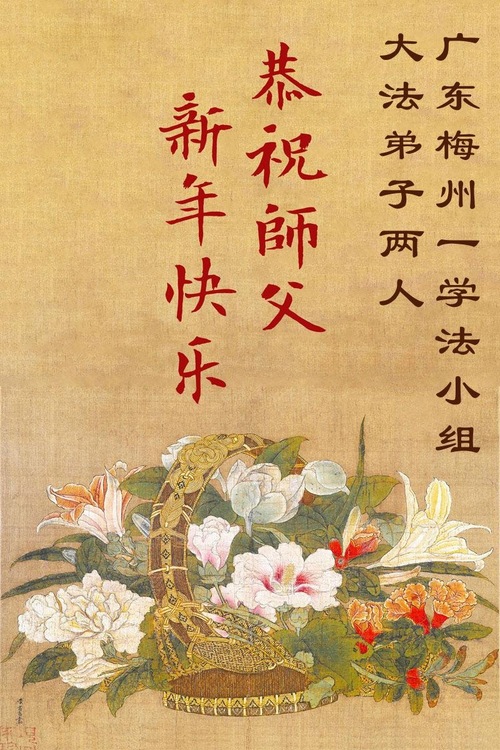 广东梅州一学法小组
大法弟子两人
恭祝師父
新年快乐